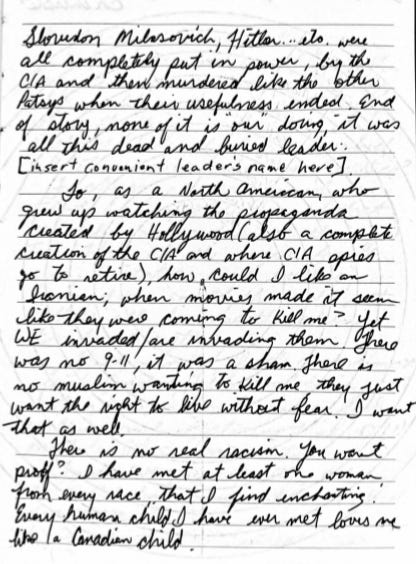 Slovedon Milosovich, Hitler...etc. were
all completely put in power, by the
CIA and then murdered like the other
Patsys when their usefulness ended. End
of story, none of it is "our" doing, it was
all this dead and buried leader.
[insert convenient leader's name here]
So, as a North American, who
grew up watching the propaganda
created by Hollywood (also a complete
creation of the CIA and where CIA spies
go to retire), how could I like an
Iranian, when movies made it seem
like they were coming to kill me? Yet
WE invaded/are invading them. There
was no 9-11, it was a sham. There is
no muslim wanting to kill me they just
want the right to live without fear. I want
that as well.
There is no real racism. You want
proff? I have met at least one woman
from every race, that I find enchanting.
Every human child I have ever met loves me
like a Canadian child.